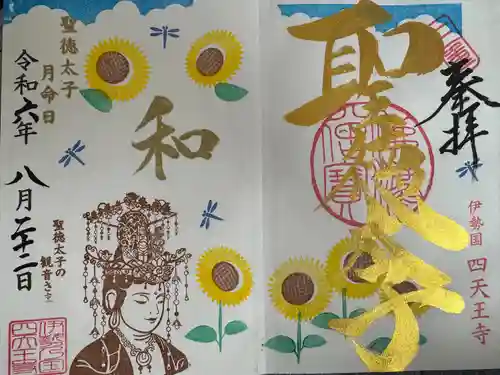 奉拝
聖徳太子
伊勢國 四天王寺
聖徳太子
月命日
和
令和六年
八月二十二日
聖徳太子の
観音さま